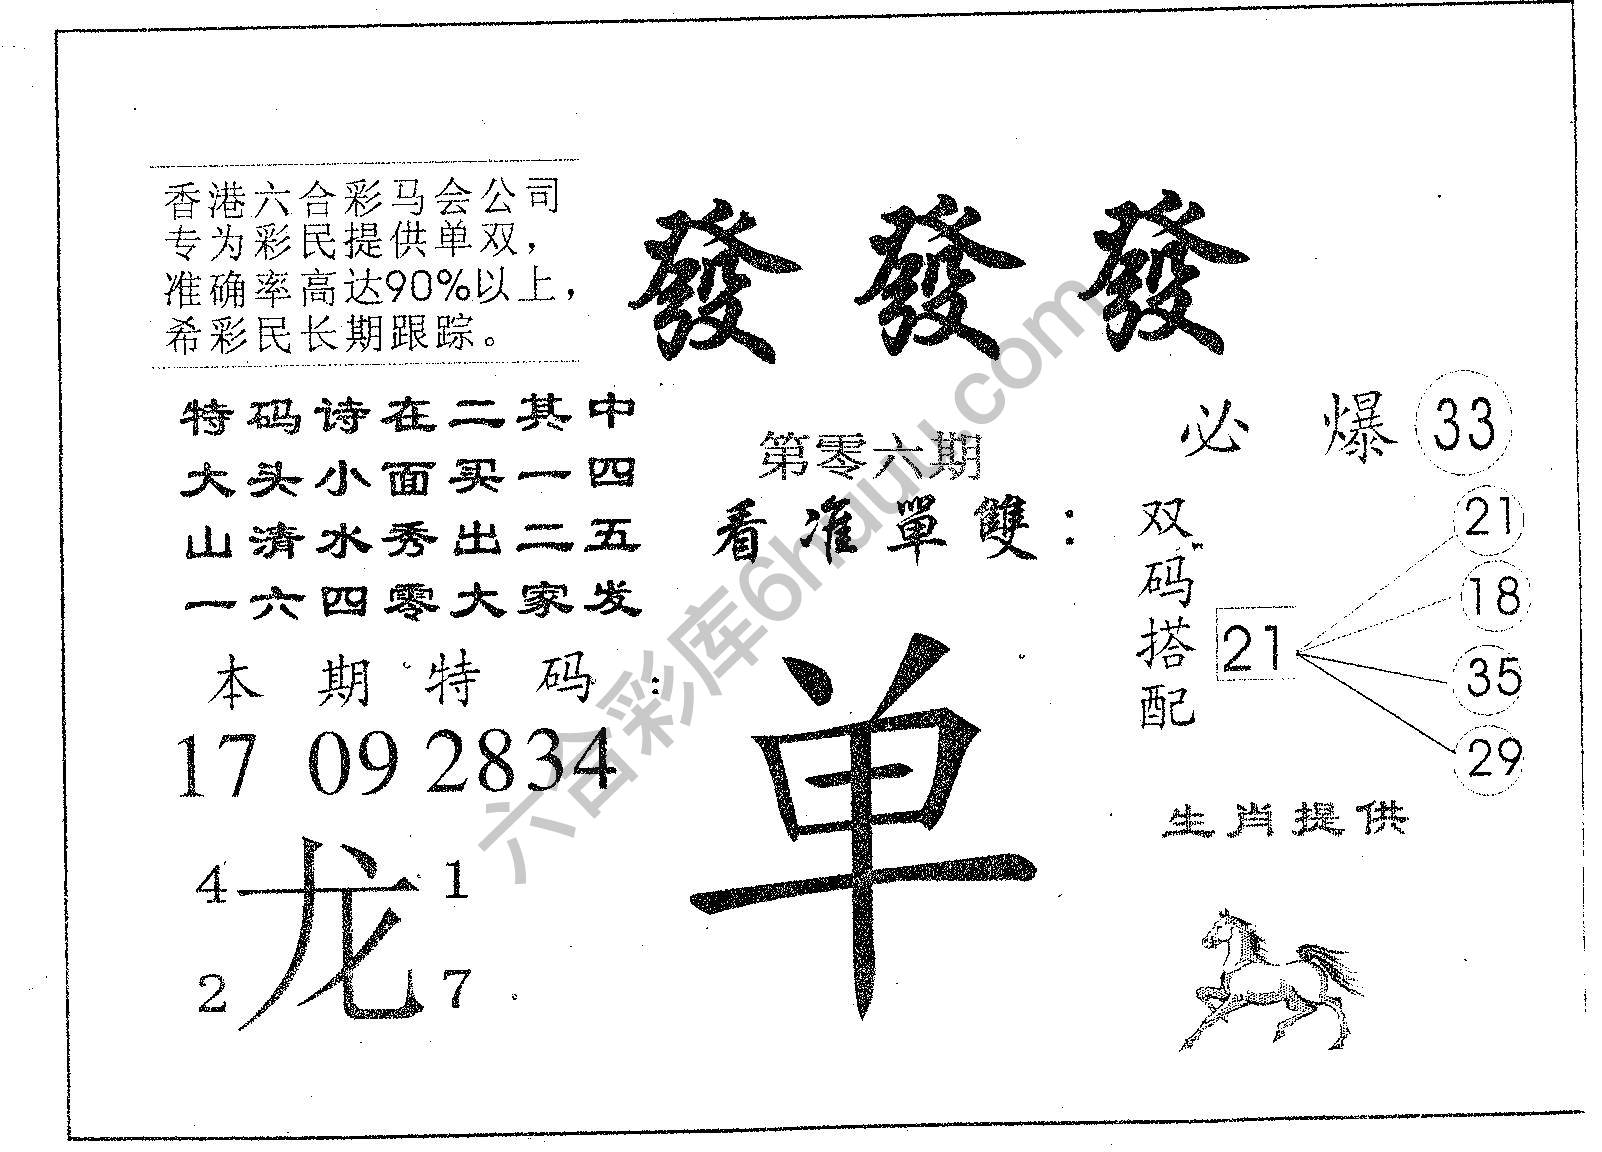 香港六合彩马会公司
专为彩民提供单双，
准确率高达90%以上，
希彩民长期跟踪。
發發發
特码诗在二其中
大头小面买一四
山清水秀出二五
一六四零大家发
第零六期
看准單雙：
必爆33
双码搭配
21
21
18
35
29
本期特码：
17 09 28 34
龙
4 1
2 7
单
生肖提供
六合彩库6hauu.com